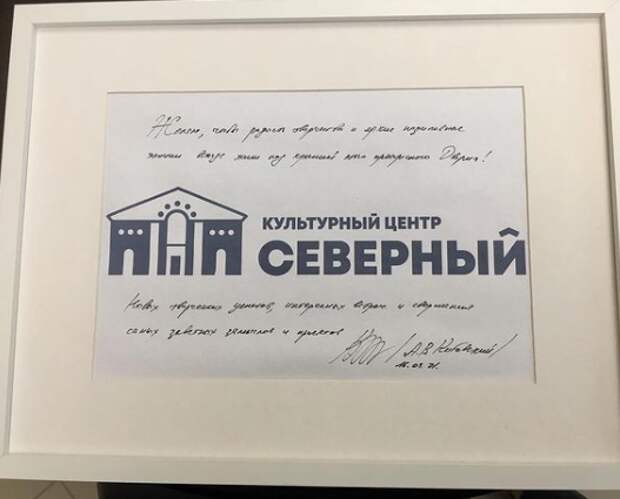 Желаю, чтобы радость творчества и яркие позитивные
эмоции всегда жили под крышей этого прекрасного Дворца!
КУЛЬТУРНЫЙ ЦЕНТР
СЕВЕРНЫЙ
Новых творческих успехов, интересных встреч и свершения
самых заветных замыслов и проектов
/А.В. Китовский/